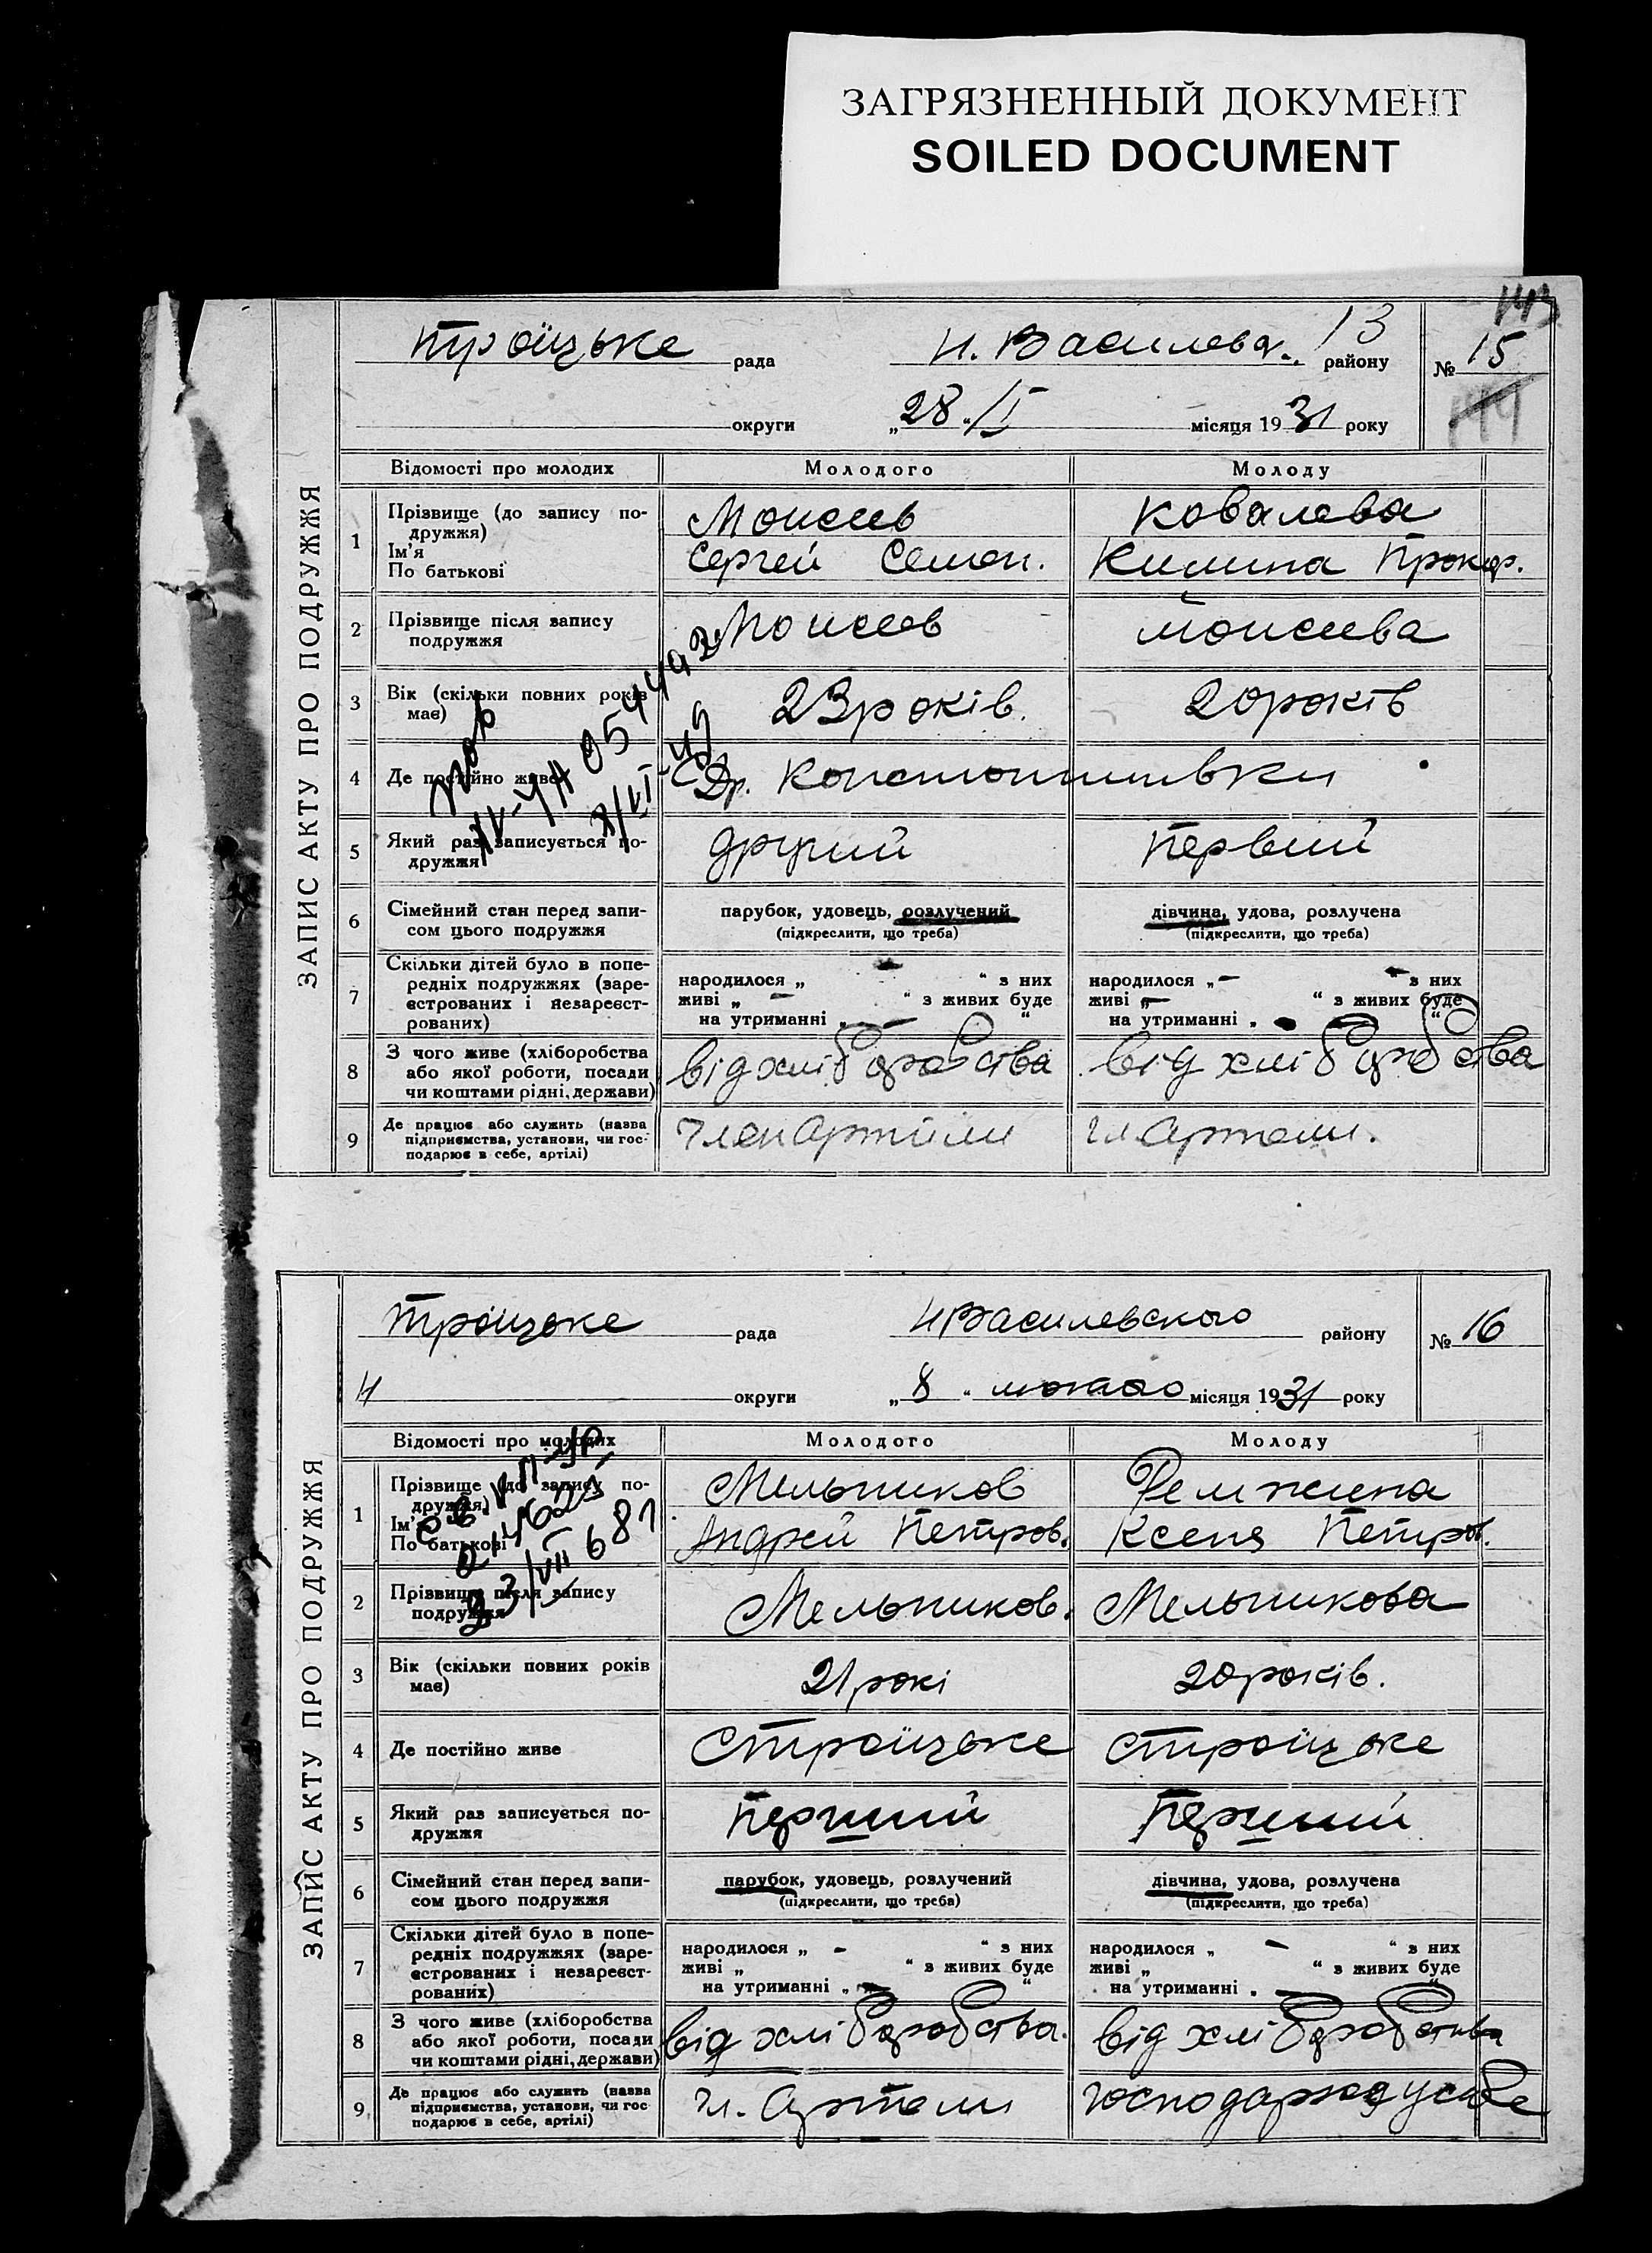 ЗАГРЯЗНЕННЫЙ ДОКУМЕНТ
SOILED DOCUMENT
ЗАПИС АКТУ ПРО ПОДРУЖЖЯ
Троїцьке рада Н. Василева. району 13
№ 15
округи „28“ /I місяця 1931 року
Відомості про молодих Молодого Молоду
1 Прізвище (до запису подружжя) Моисеев Ковалева
Ім'я
По батькові Сергей Семен. Килина Прокоф.
2 Прізвище після запису подружжя Моисеев Моисеева
3 Вік (скільки повних років має) 23 років. 20 років
4 Де постійно живе
5 Який раз записується подружжя другий первий
6 Сімейний стан перед записом цього подружжя парубок, удовець, розлучений дівчина, удова, розлучена
(підкреслити, що треба) (підкреслити, що треба)
7 Скільки дітей було в попередніх подружжях (зареєстрованих і незареєстрованих)
народилося „ – “ з них народилося „ – “ з них
живі „ – “ з живих буде живі „ – “ з живих буде
на утриманні „ – “ на утриманні „ – “
8 З чого живе (хліборобства або якої роботи, посади чи коштами рідні, держави) від хліборобства від хліборобства
9 Де працює або служить (назва підприємства, установи, чи господарює в себе, артілі) Член Артили чл. Артели.
ЗАПИС АКТУ ПРО ПОДРУЖЖЯ
Троїцьке рада НВасилевского району
№ 16
округи „8“ лютого місяця 1931 року
Відомості про молодих Молодого Молоду
1 Прізвище (до запису подружжя) Мельников
Ім'я
По батькові Андрей Петров. Ксеня Петров.
2 Прізвище після запису подружжя Мельников. Мельникова
3 Вік (скільки повних років має) 21 рокі 20 років.
4 Де постійно живе С Троїцьке С Троїцьке
5 Який раз записується подружжя Перший Перший
6 Сімейний стан перед записом цього подружжя парубок, удовець, розлучений дівчина, удова, розлучена
(підкреслити, що треба) (підкреслити, що треба)
7 Скільки дітей було в попередніх подружжях (зареєстрованих і незареєстрованих)
народилося „ – “ з них народилося „ – “ з них
живі „ “ з живих буде живі „ “ з живих буде
на утриманні „ – “ на утриманні „ – “
8 З чого живе (хліборобства або якої роботи, посади чи коштами рідні, держави) від хліборобства. від хліборобства
9 Де працює або служить (назва підприємства, установи, чи господарює в себе, артілі) Чл. Артели господарює у себе